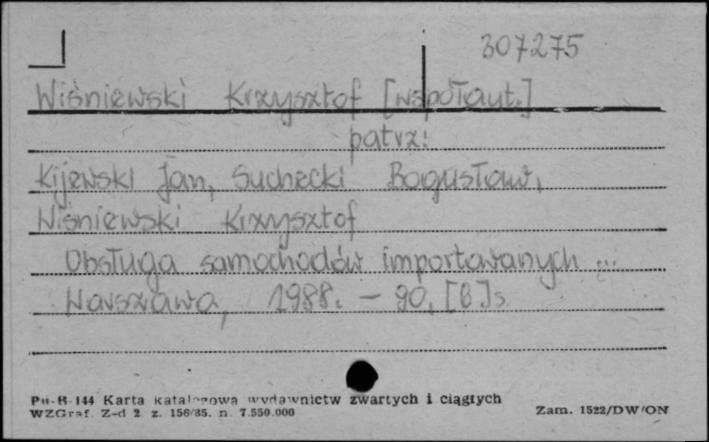 307275
Wiśniewski Krzysztof [współaut.]
patrz:
Kijewski Jan, Suchecki Bogusław,
Wiśniewski Krzysztof
Obsługa samochodów importowanych ...
Warszawa, 1988. – 90, [6] s
Pu-B-144 Karta katalogowa wydawnictw zwartych i ciągłych
WZGraf. Z-d 2 z. 156/85. n. 7.550.000
Zam. 1522/DW/ON